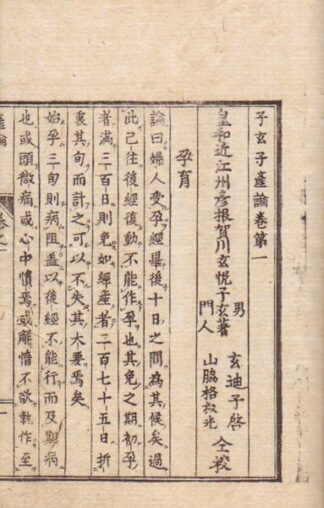 子玄子產論卷第一
皇和近江州彥根賀川玄悅子玄著
男 玄迪子啓
門人 山脇格叔光 仝校
孕育
論曰婦人受孕經畢後十日之間為其候矣過
此已往後經復動不能作孕也其免之期初孕
者滿三百日則免如經產者二百七十五日折
衷其旬而計之可以不失其大要焉矣
始孕三旬則病阻蓋以後經不能行而及期病
也或頭微痛或心中憒焉或解㑊不欲執作至
產論
卷之一